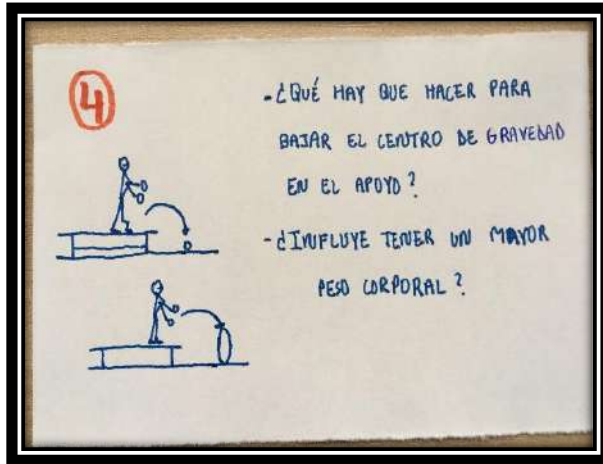 4
- ¿QUÉ HAY QUE HACER PARA
BAJAR EL CENTRO DE GRAVEDAD
EN EL APOYO?
- ¿INFLUYE TENER UN MAYOR
PESO CORPORAL?